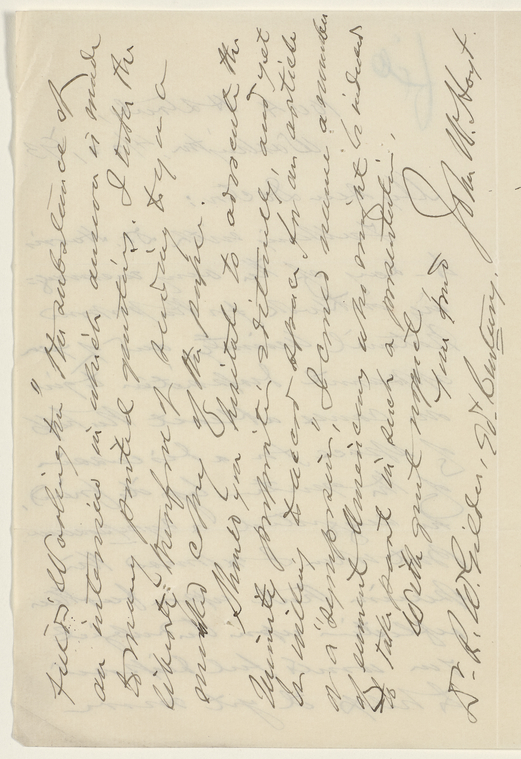 field's Washington" the substance of
an interview in which answer is made
to many pointed queries. I take the
liberty therefore of sending to you a
marked copy of the paper.
Should you hesitate to advocate the
University proposition editorially and yet
be willing to accord space for an article
or a "symposium," I could name a number
of eminent Americans who might be induced
to take part in such a presentation.
With great respect
Yours truly
John W. Hoyt.
Dr. R. W. Gilder, Ed'r Century.